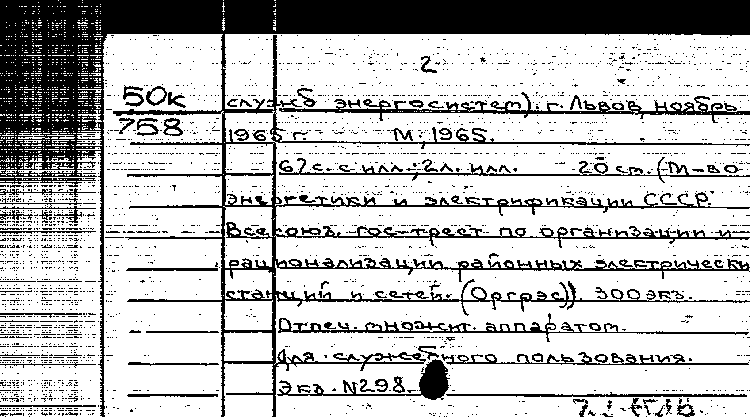 2
50к служб энергосистем). г. Львов, ноябрь
758 1965 г. М., 1965.
67 с. с илл.; 2 л. илл. 20 см. (М-во
энергетики и электрификации СССР.
Всесоюз. гос. трест по организации и
рационализации районных электрически
станций и сетей. (Оргрэс)). 300 экз.
Отпеч. множит. аппаратом.
Для служебного пользования.
Экз. №298.